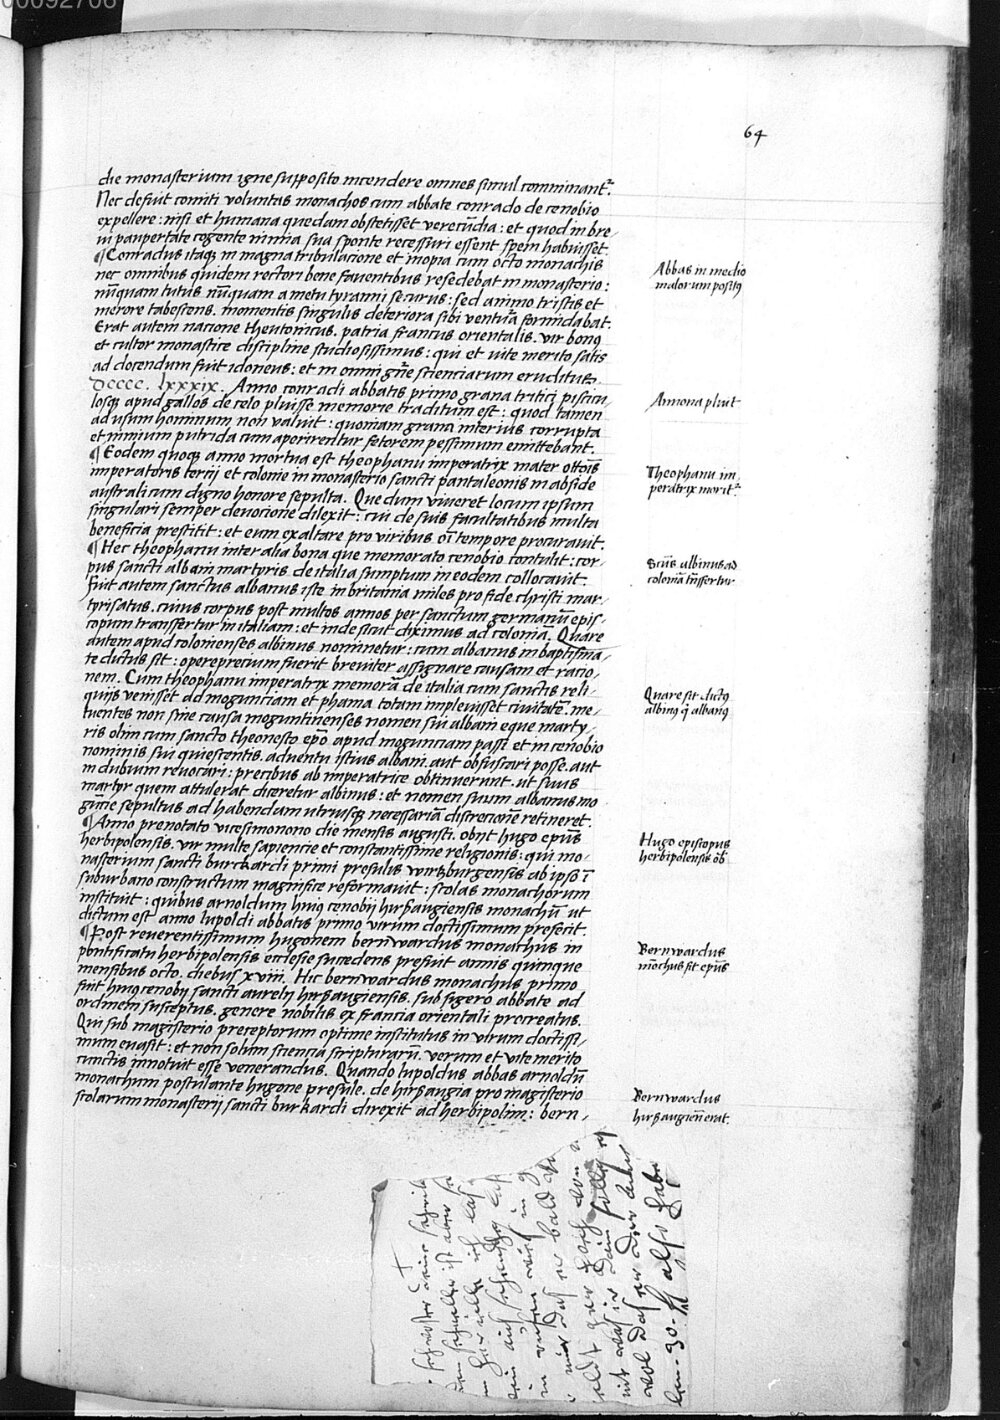 00092706
64
die monasterium igne supposito incendere omnes simul comminant᷑.
Nec defuit comiti voluntas monachos cum abbate conrado de cenobio
expellere: nisi et humana quedam obstetisset verecūdia: et quod in bre-
ui paupertate cogente nimia sua sponte recessuri essent spem habuisset.
¶ Conradus itaqꝫ in magna tribulacione et inopia cum octo monachis
nec omnibus quidem rectori bene fauentibus resedebat in monasterio:
nūquam tutus nūquam a metu tyranni securus: sed animo tristis et
merore tabescens. momentis singulis deteriora sibi ventura formidabat.
Erat autem nacione theutonicus. patria francus orientalis. vir bonꝰ
et cultor monastice discipline studiosissimus: qui et vite merito satis
ad docendum fuit idoneus: et in omni gn̄e scienciarum eruditus.
DCCCC. lxxxix. Anno conradi abbatis primo grana tritici pisciculosqꝫ
apud gallos de celo pluisse memorie traditum est: quod tamen
ad usum hominum non valuit: quoniam grana interius corrupta
et nimium putrida cum aperirentur fetorem pessimum emittebant.
¶ Eodem quoqꝫ anno mortua est theophanu imperatrix mater ottōis
imperatoris tercij et colonie in monasterio sancti pantaleonis in abside
australi cum digno honore sepulta. Que dum viueret locum ipsum
singulari semper deuocione dilexit: cui de suis facultatibus multa
beneficia prestitit: et eum exaltare pro viribus oī tempore procurauit.
¶ Hec theophanu inter alia bona que memorato cenobio contulit: cor-
pus sancti albani martyris de italia sumptum in eodem collocauit.
Fuit autem sanctus albanus iste in britania miles pro fide christi mar-
tyrisatus. cuius corpus post multos annos per sanctum germanū epis-
copum transfertur in italiam: et inde sicut diximus ad colonia. Quare
autem apud colonienses albinus nominetur: cum albanus in baptisma-
te dictus sit: opereprecium fuerit breuiter assignare causam et racio-
nem. Cum theophanu imperatrix memorā de italia cum sanctis reli-
quijs venisset ad mogunciam et phama totam impleuisset ciuitatē. me-
tuentes non sine causa moguntinenses nomen sui albani eque marty-
ris olim cum sancto theonesto ep̄o apud mogunciam passi et in cenobio
nominis sui quiescentis. aduentu istius albani. aut obfuscari posse. aut
in dubium reuocari: precibus ab imperatrice obtinuerunt. ut suus
martyr quem attulerat diceretur albinus: et nomen suum albanus mo-
gūcie sepultus ad habendam utriusqꝫ necessariā discrecionē retineret.
¶ Anno prenotato vicesimonono die mensis augusti. obijt hugo ep̄us
herbipolensis. vir multe sapiencie et constantissime religionis: qui mo-
nasterium sancti burckardi primi presulis wirtzburgensis ab ipso ī
suburbano constructum magnifice reformauit: scolas monachorum
instituit: quibus arnoldum huiꝰ cenobij hirsaugiensis monachū ut
dictum est anno lupoldi abbatis primo virum doctissimum prefecit.
¶ Post reuerentissimum hugonem bernwardus monachus in
pontificatu herbipolensis ecclesie succedens prefuit annis quinque
mensibus octo. diebus xviii. Hic bernwardus monachus primo
fuit huiꝰ cenobij sancti aurelij hirsaugiensis. sub sigero abbate ad
ordinem susceptus. genere nobilis ex francia orientali procreatus.
Qui sub magisterio preceptorum optime institutus in virum doctissi-
mum euasit: et non solum sciencia scripturarū. verum et vite merito
cunctis innotuit esse venerandus. Quando lupoldus abbas arnoldū
monachum postulante hugone presule. de hirsaugia pro magisterio
scolarum monasterij sancti burkardi direxit ad herbipolim: bern-
Abbas in medio
malorum positꝰ
Annona pluit
Theophanu im-
peratrix morit᷑.
Scūs albinus ad
coloniā trāsfertur
Quare sit dictꝰ
albinꝰ q̄ albanꝰ
Hugo episcopus
herbipolensis ob̄
Bernwardus
mōchus fit ep̄us
Bernwardus
hirsaugien̄ erat.